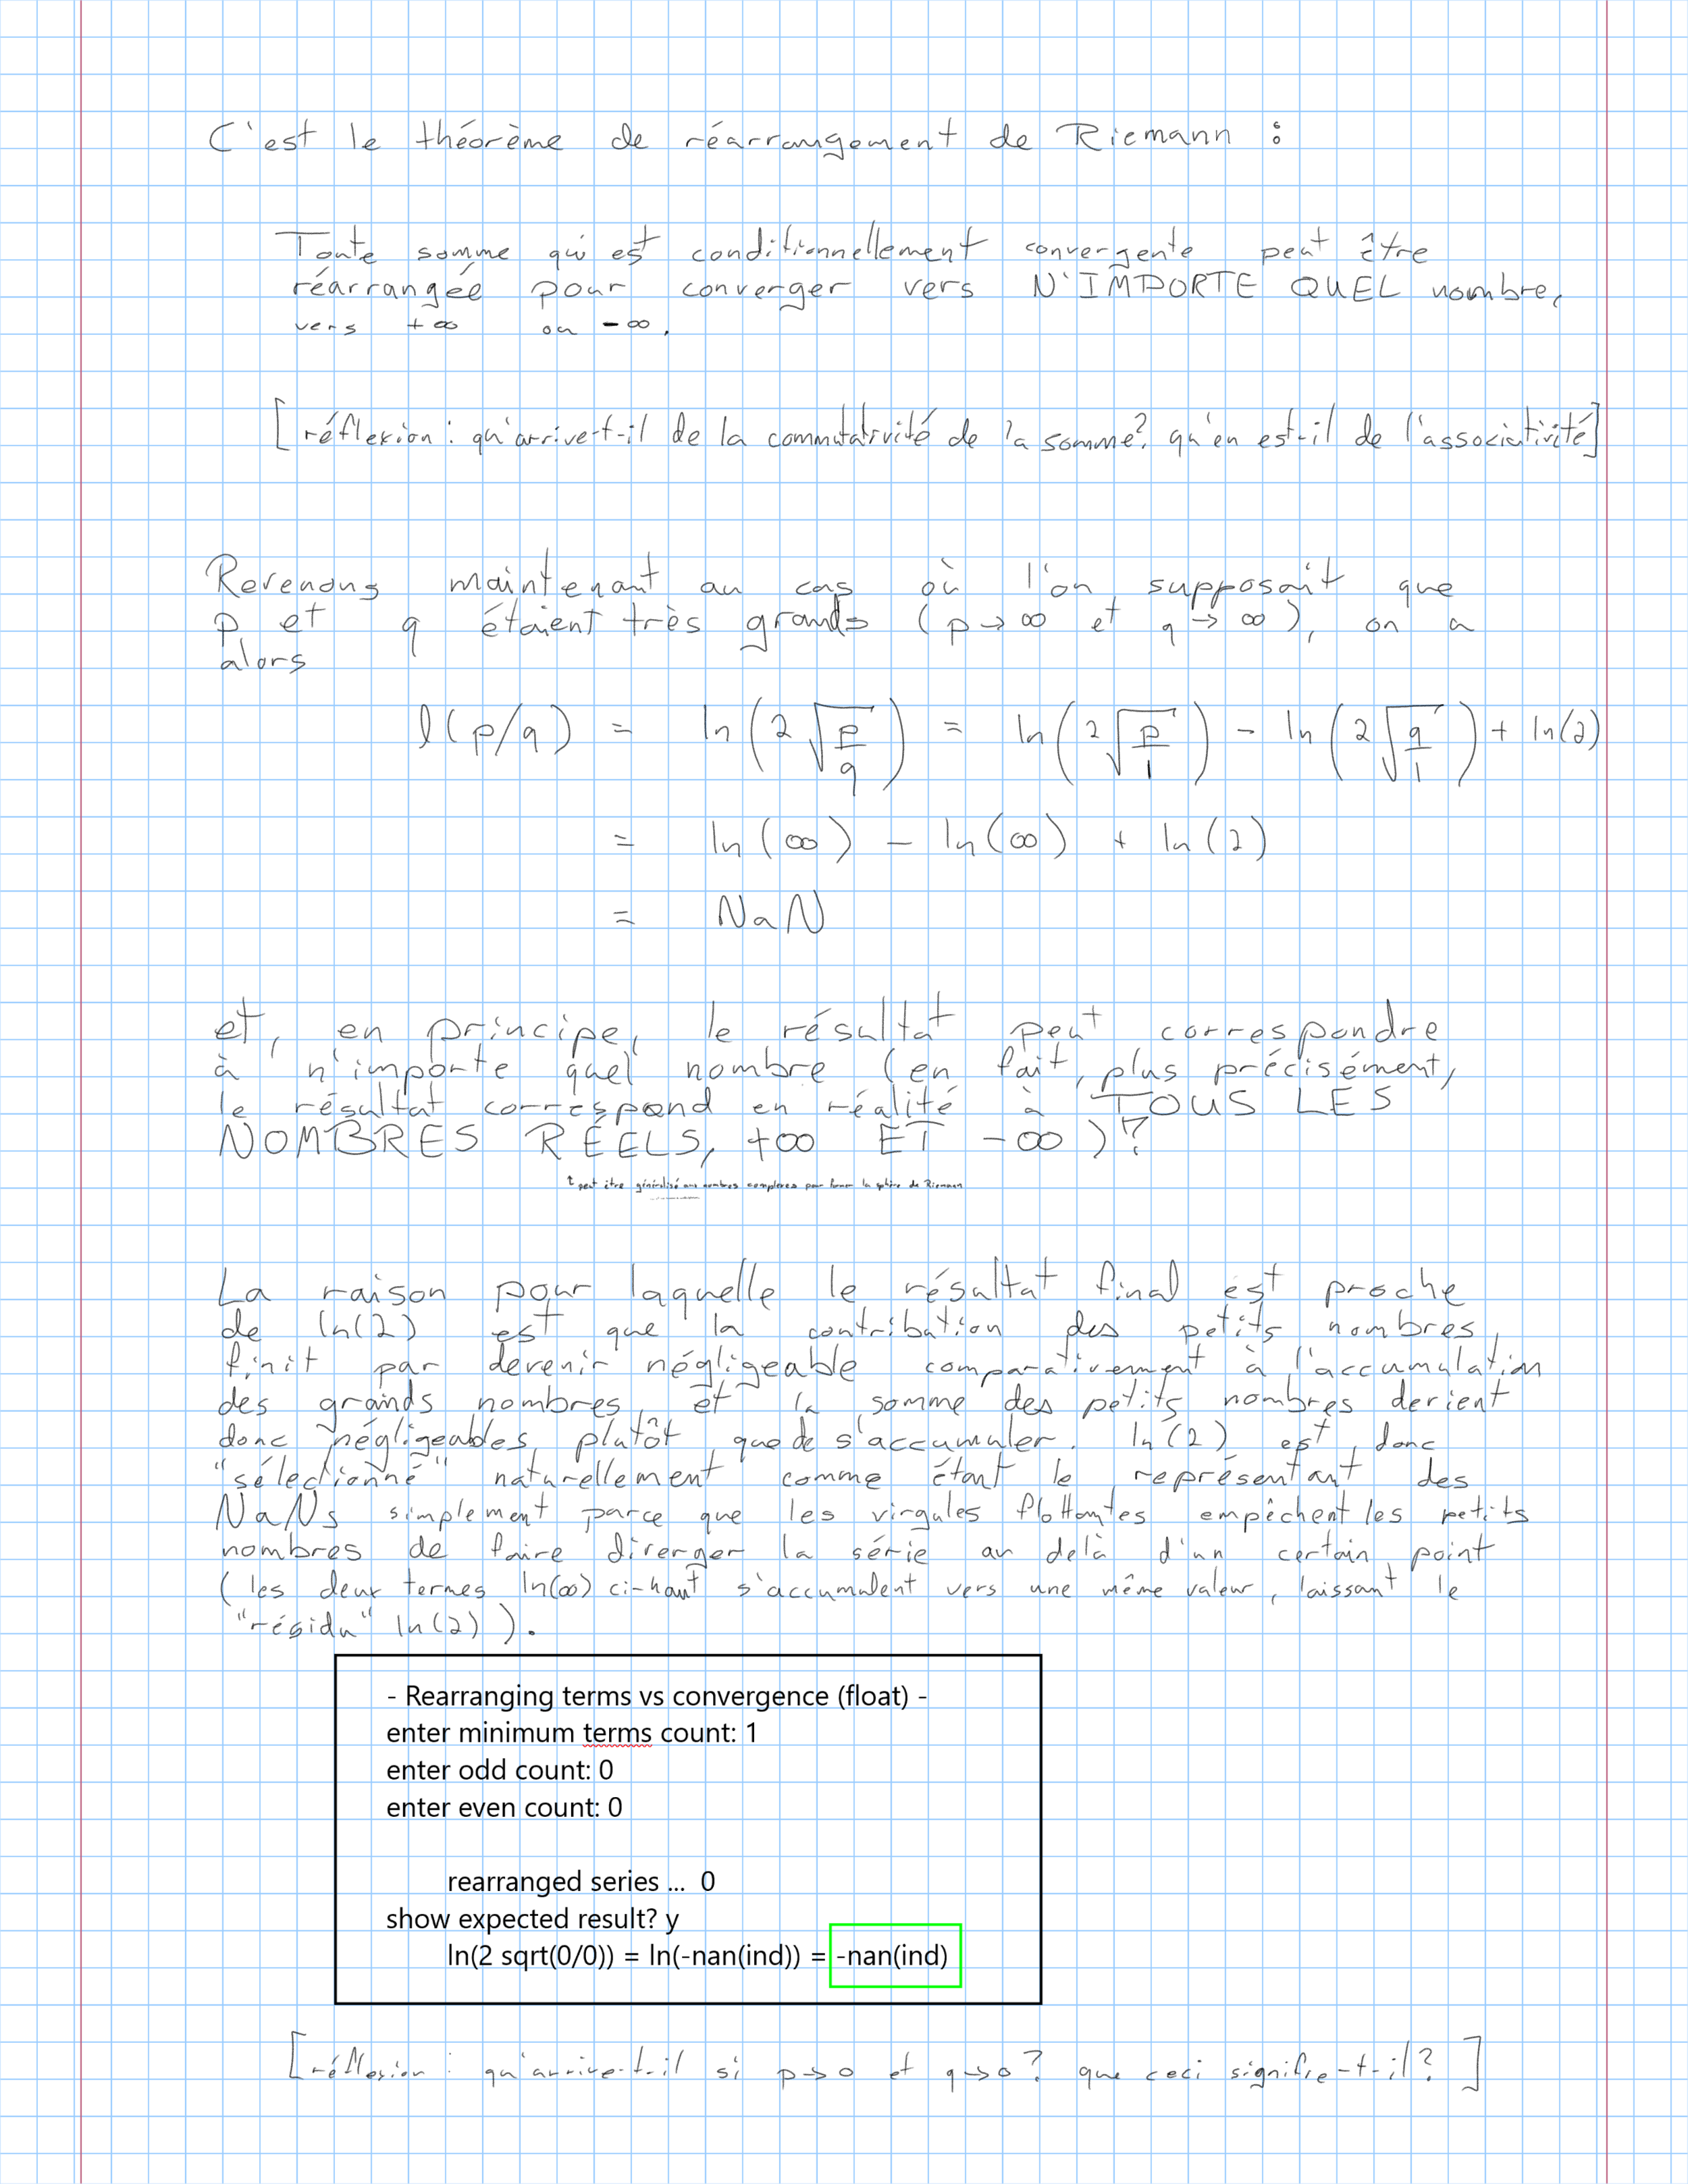 C'est le théorème de réarrangement de Riemann :
Toute somme qui est conditionnellement convergente peut être
réarrangée pour converger vers N'IMPORTE QUEL nombre,
vers +∞ ou -∞.
[réflexion : qu'arrive-t-il de la commutativité de la somme? qu'en est-il de l'associativité]
Revenons maintenant au cas où l'on supposait que
p et q étaient très grands (p→∞ et q→∞), on a
alors
l(p/q) = ln(2√(p/q)) = ln(2√(p/1)) - ln(2√(q/1)) + ln(2)
= ln(∞) - ln(∞) + ln(2)
= NaN
et, en principe, le résultat peut correspondre
à n'importe quel nombre (en fait, plus précisément,
le résultat correspond en réalité à TOUS LES
NOMBRES RÉELS, +∞ ET -∞)!?
peut être généralisé aux nombres complexes pour former la sphère de Riemann
La raison pour laquelle le résultat final est proche
de ln(2) est que la contribution des petits nombres
finit par devenir négligeable comparativement à l'accumulation
des grands nombres, et la somme des petits nombres devient
donc négligeables, plutôt que de s'accumuler. ln(2) est donc
"sélectionné" naturellement comme étant le représentant des
NaNs simplement parce que les virgules flottantes empêchent les petits
nombres de faire diverger la série au delà d'un certain point
(les deux termes ln(∞) ci-haut s'accumulent vers une même valeur, laissant le
"résidu" ln(2)).
- Rearranging terms vs convergence (float) -
enter minimum terms count: 1
enter odd count: 0
enter even count: 0
rearranged series ... 0
show expected result? y
ln(2 sqrt(0/0)) = ln(-nan(ind)) = -nan(ind)
[réflexion : qu'arrive-t-il si p→0 et q→0? que ceci signifie-t-il?]